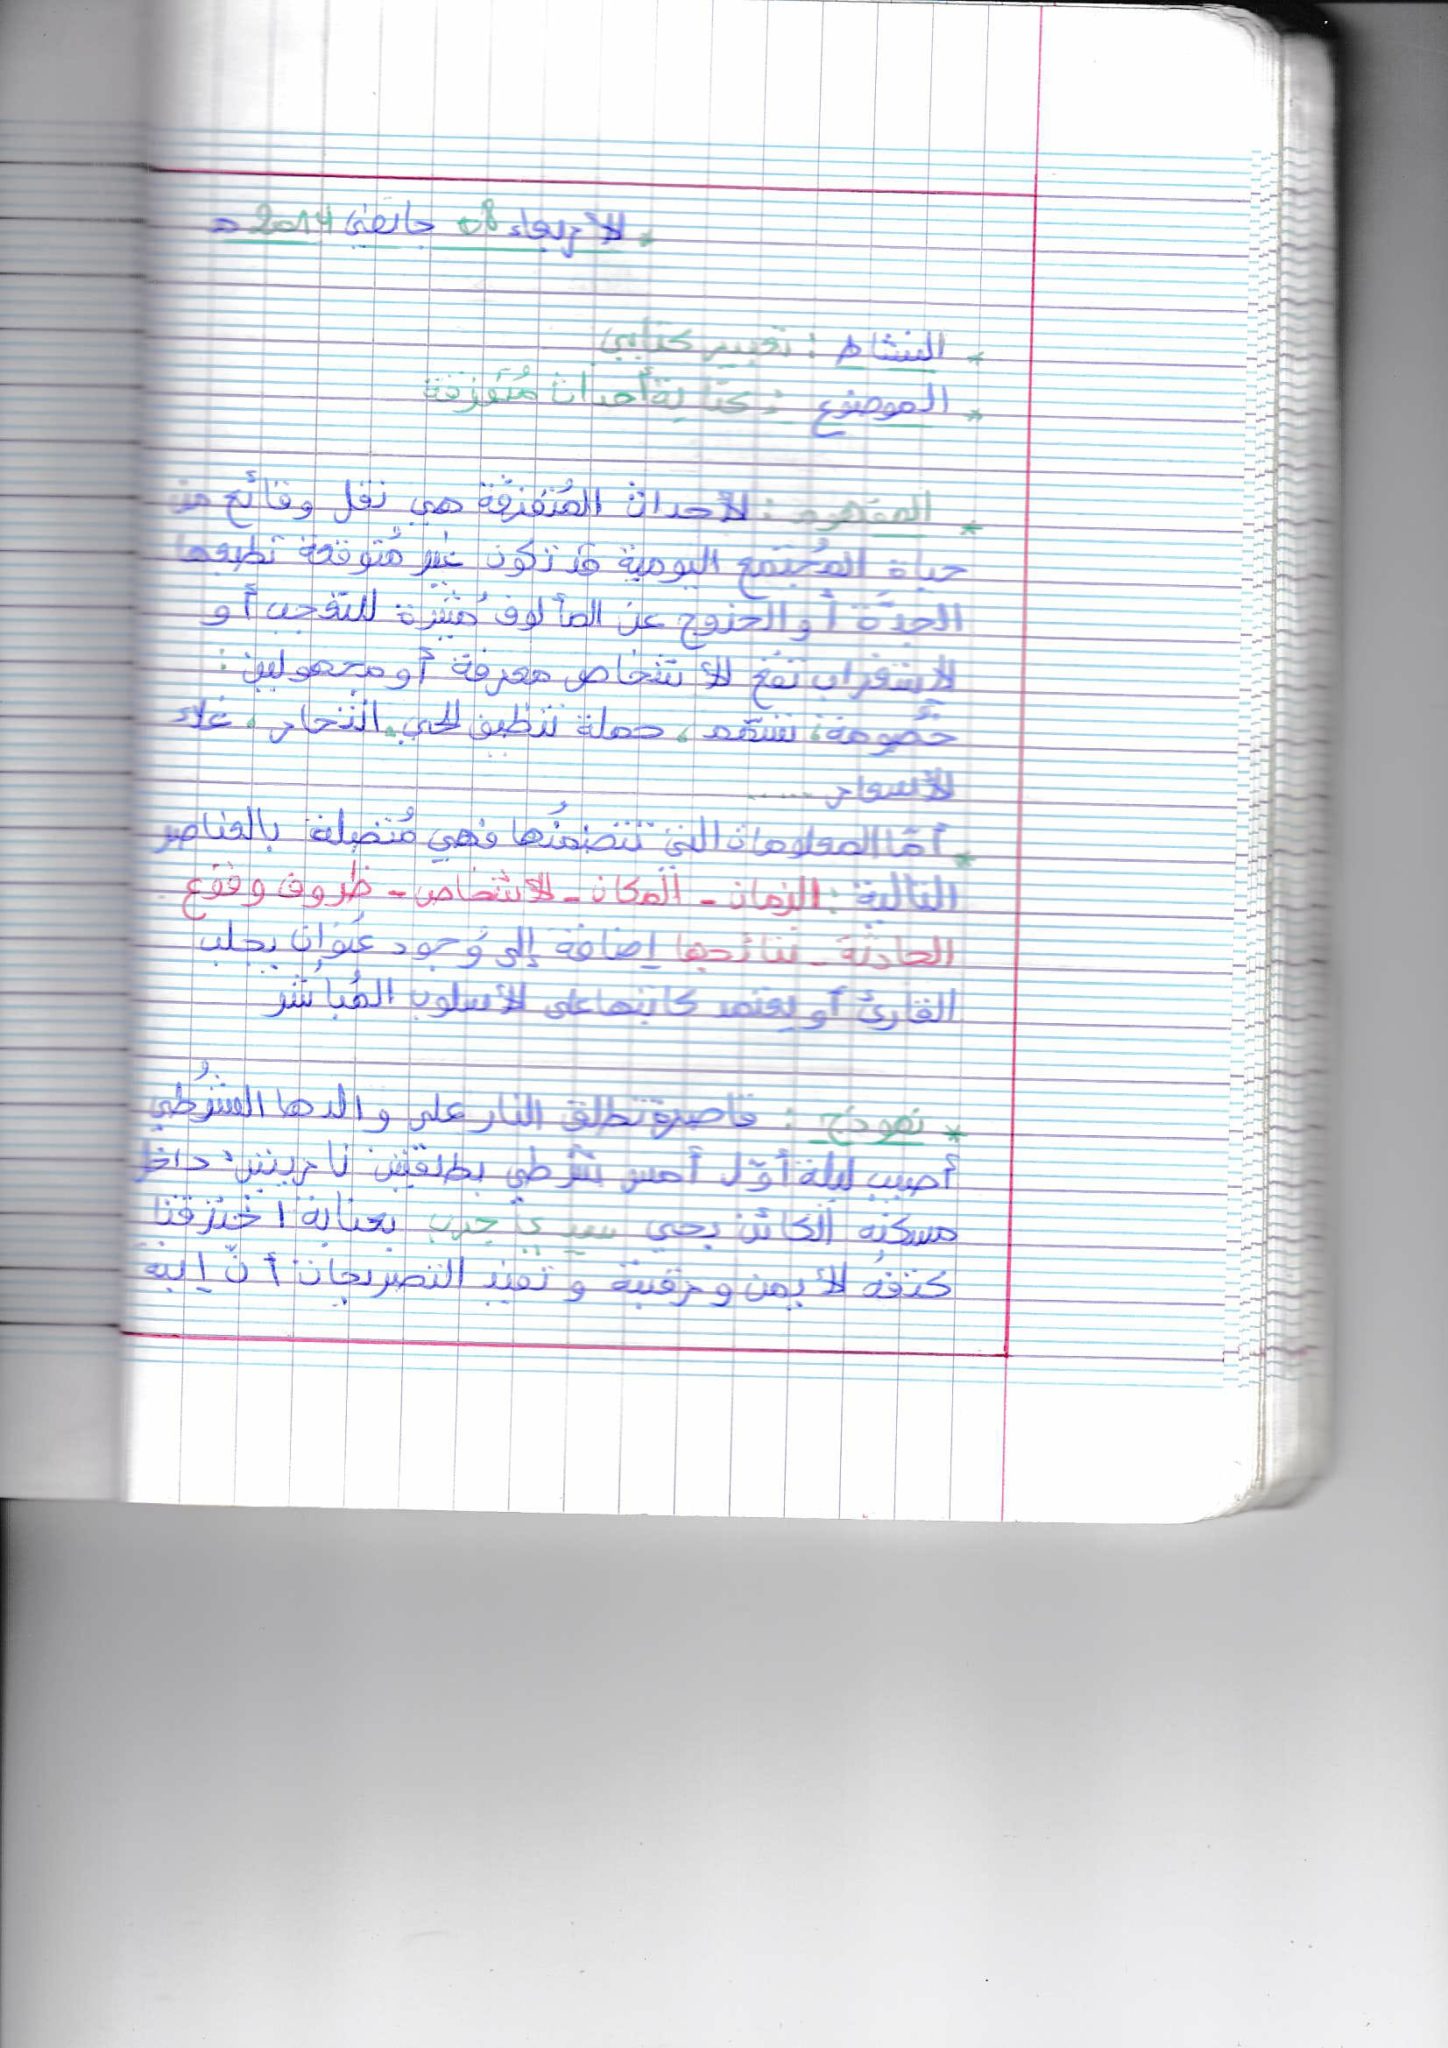 الأربعاء 08 جانفي 2014 م
* النشاط : تعبير كتابي
* الموضوع : كتابة أحداث مُتفرقة
* المفهوم : الأحداث المُتفرقة هي نقل وقائع من
حياة المُجتمع اليومية قد تكون غير مُتوقعة تطبعها
الجدّة أو الخروج عن المألوف مُثيرة للتعجب أو
الاستغراب تقع لأشخاص معرفة أو مجهولين :
خصومة، شتم ، حملة تنظيف لحي ، انتحار ، غلاء
الأسعار ......
* أمّا المعلومات التي تتضمنُها فهي مُتصلة بالعناصر
التالية : الزمان - المكان - الأشخاص - ظروف وقوع
الحادثة - نتائجها إضافة إلى وُجود عُنوان يجلب
القارئ أو يعتمد كاتبها على الأسلوب المُباشر
* نموذج : قاصرة تطلق النار على والدها الشرُطي
أصيب ليلة أوّل أمس شُرطي بطلقتين ناريتين داخل
مسكنه الكائن بحي سيدي حرب بعنابة اخترقتا
كتفه الأيمن ورقبته و تفيد التصريحات أنّ إبنة